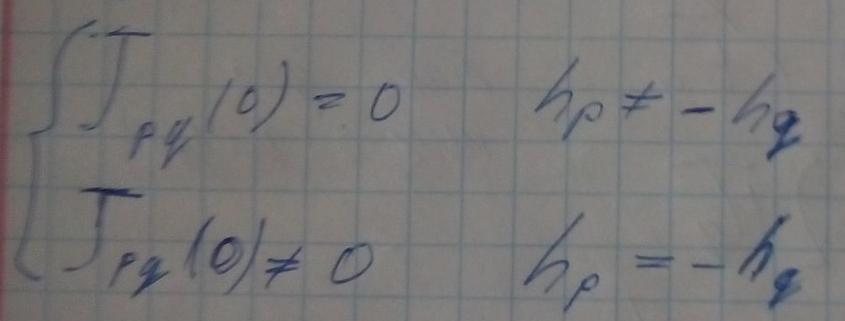 J_{pq}(0) = 0 h_p ≠ -h_q
J_{pq}(0) ≠ 0 h_p = -h_q